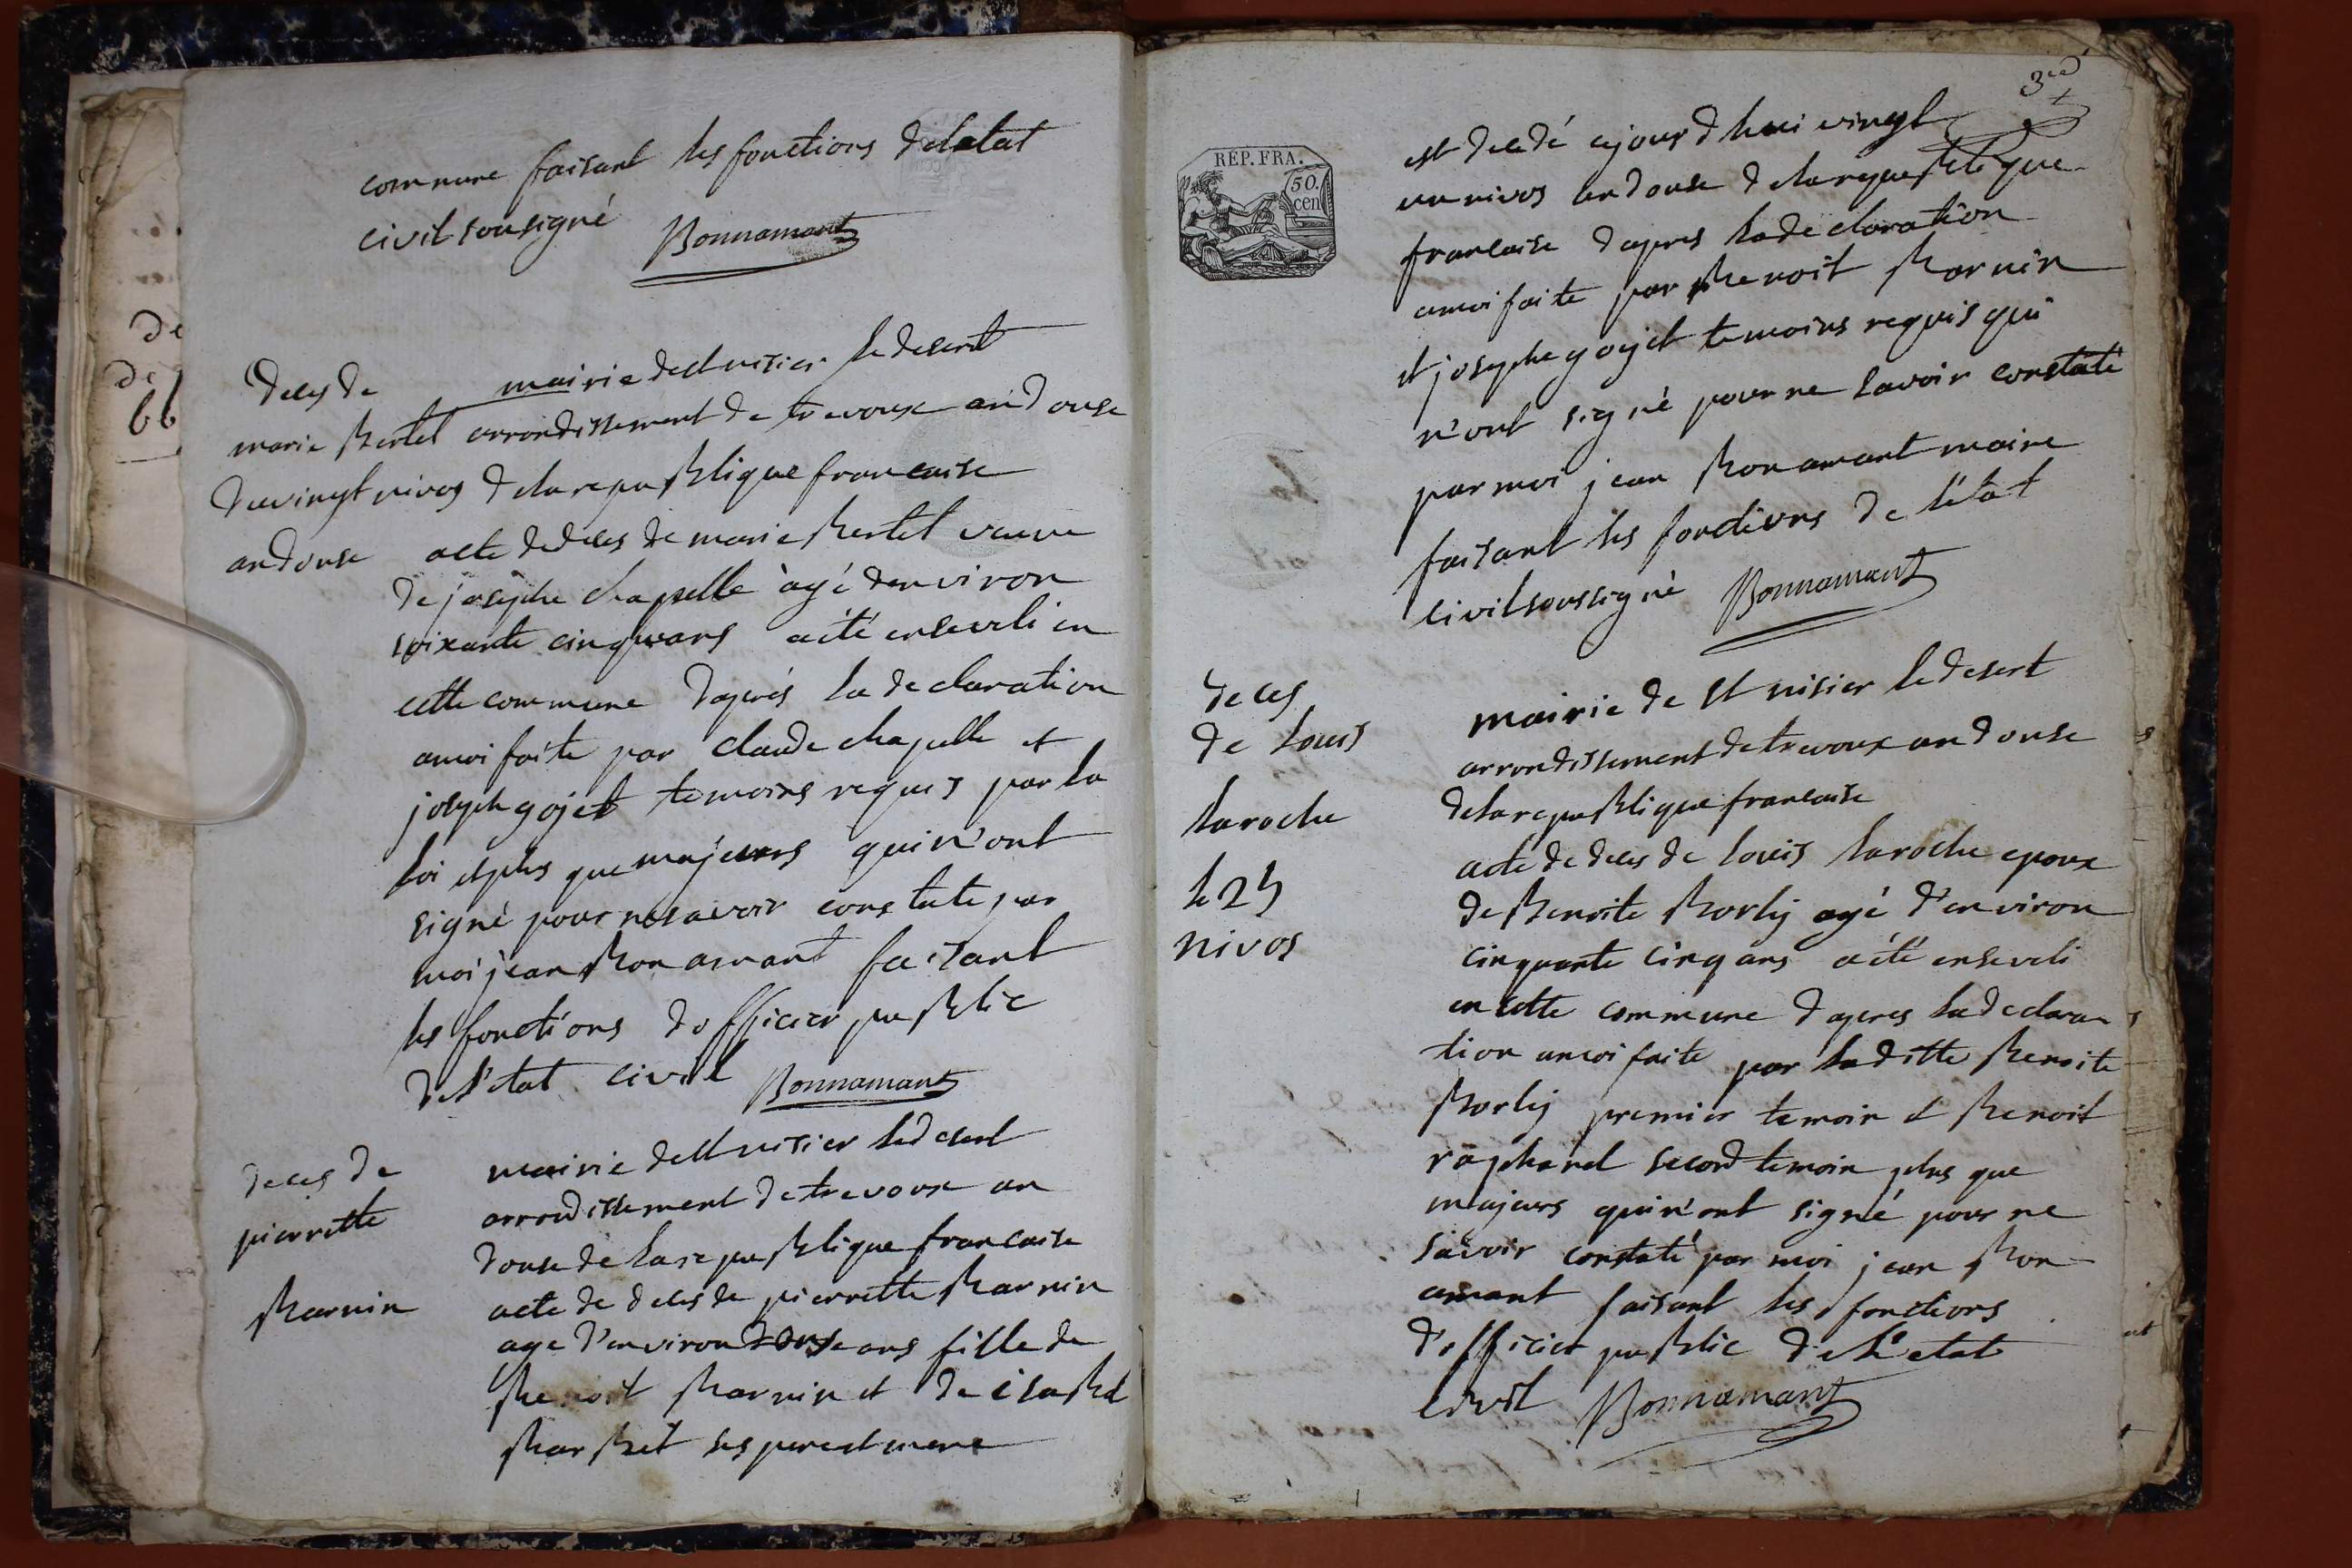 commune faisant les fonctions deletat
civil sousigné Bonnamant
Deces de
marie Bertet
du vingt nivos
an douse
mairie de st nisier le desert
arrondissement de trevoux an douse
de la republique francaise
acte de deces de marie Bertet veuve
de josephe chapelle agé denviron
soixante cinq ans a été enseveli en
cette commune d'aprés la declaration
a moi faite par claude chapelle et
joseph gojet temoins requis par la
loi et plus que majeurs qui n'ont
signé pour ne savoir constaté par
moi jean Bonamant faisant
les fonctions d'officier public
de l'etat civil Bonnamant
deces de
pierrette
Barnin
mairie de st nisier le desert
arrondissement de trevoux an
douse de la republique francaise
acte de deces de pierrette Barnin
age d'environ douse ans fille de
Benoit Barnin et de isabel
Barbet ses pere et mere
3
REP. FRA.
50.
cen
est decedé cejourd huii vingt
un nivos an douse de la republique
francaise d'apres la declaration
a moi faite par Benoit Barnin
et josephe gojet temoins requis qui
n'ont signé pour ne savoir constaté
par moi jean Bonamant maire
faisant les fonctions de l'état
civil soussigné Bonnamant
deces
de louis
laroche
le 25
nivos
mairie de st nisier le desert
arrondissement de trevoux an douse
de la republique francaise
acte de deces de louis laroche epoux
de Benoite Borly agé d'environ
cinquante cinq ans a été enseveli
en cette commune d'apres la declara
tion a moi faite par laditte Benoite
Borly premier temoin et Benoit
raphanel second temoin plus que
majeurs qui n'ont signé pour ne
savoir constaté par moi jean Bon
amant faisant les fonctions
d'officier public de l'etat
civil Bonnamant